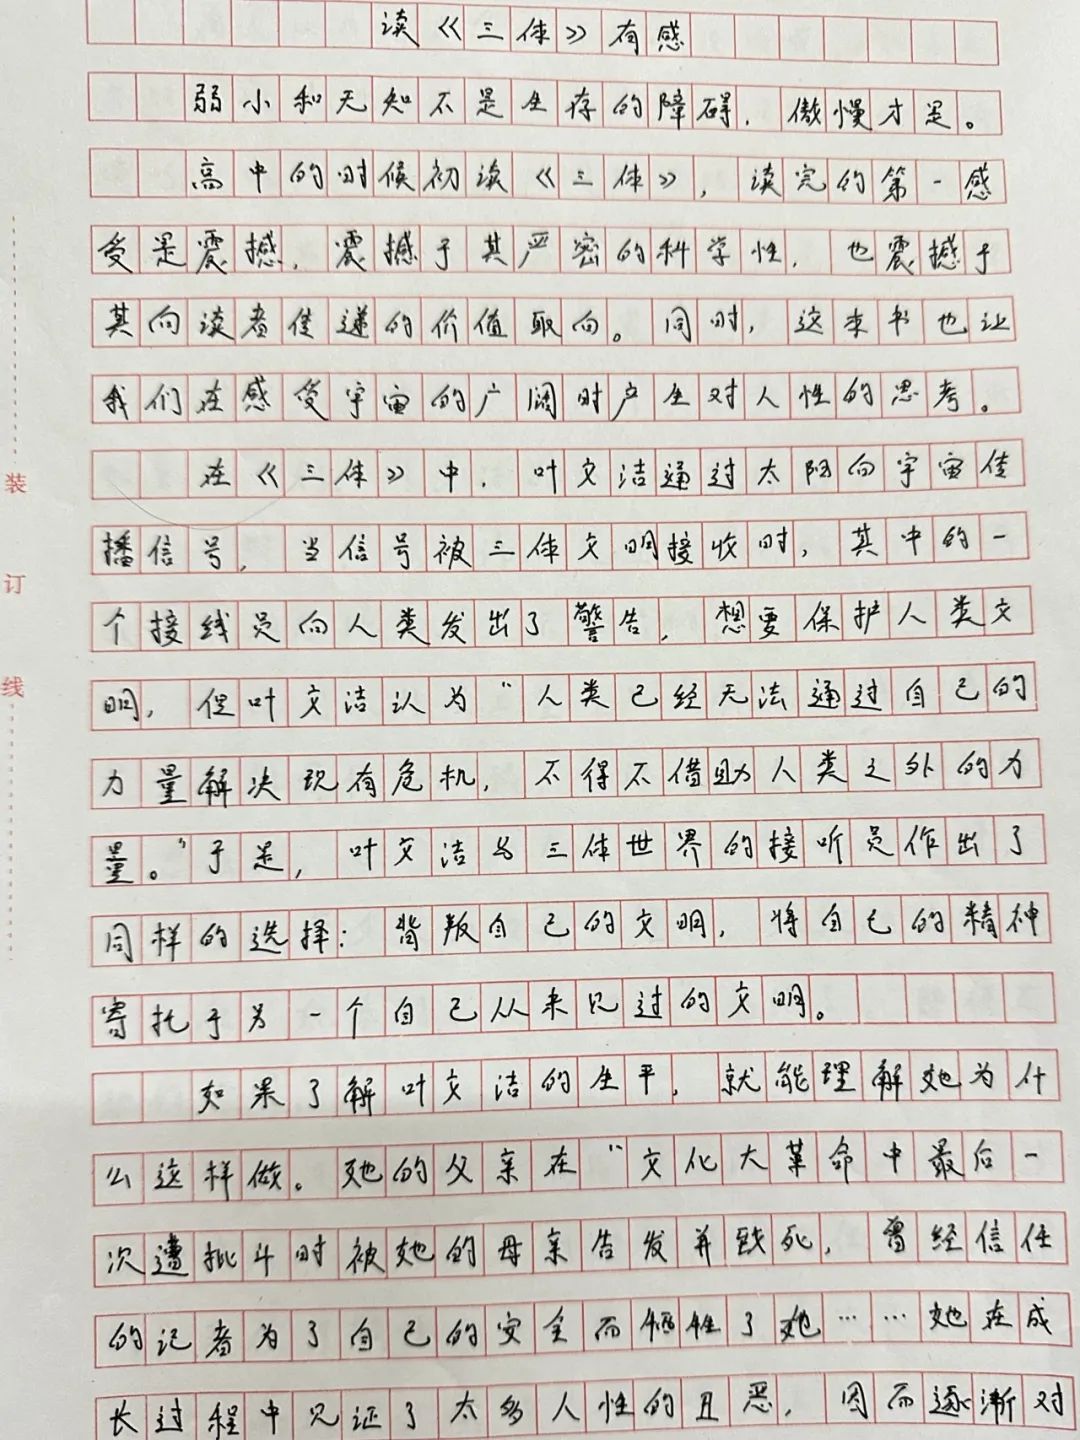 读《三体》有感
弱小和无知不是生存的障碍，傲慢才是。
高中的时候初读《三体》，读完的第一感
受是震撼，震撼于其严密的科学性，也震撼于
其向读者传递的价值取向。同时，这本书也让
我们在感受宇宙的广阔时产生对人性的思考。
在《三体》中，叶文洁通过太阳向宇宙传
播信号，当信号被三体文明接收时，其中的一
个接线员向人类发出了警告，想要保护人类文
明，但叶文洁认为“人类已经无法通过自己的
力量解决现有危机，不得不借助人类之外的力
量。”于是，叶文洁与三体世界的接听员作出了
同样的选择：背叛自己的文明，将自己的精神
寄托于另一个自己从未见过的文明。
如果了解叶文洁的生平，就能理解她为什
么这样做。她的父亲在“文化大革命中最后一
次遭批斗时被她的母亲告发并致死，曾经信任
的记者为了自己的安全而牺牲了她……她在成
长过程中见证了太多人性的丑恶，因而逐渐对
装
订
线